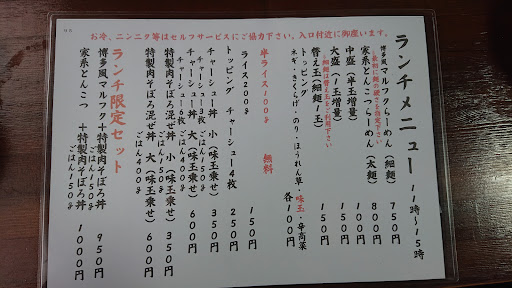 お冷、ニンニク等はセルフサービスにご協力下さい。入口付近に御座います。
ランチメニュー 11時～15時
博多風マルフクらーめん(細麺) 750円
家系とんこつらーめん(太麺) 800円
中盛(半玉増量) 100円
大盛(1玉増量) 150円
※細麺は替え玉をご利用下さい
替え玉(細麺1玉) 150円
トッピング
ネギ・きくらげ・のり・ほうれん草・味玉・辛高菜 各100円
半ライス100g 無料
ライス200g 150円
トッピング チャーシュー4枚 250円
チャーシュー丼 小(味玉乗せ) 350円
チャーシュー3枚 ごはん150g
チャーシュー丼 大(味玉乗せ) 600円
チャーシュー6枚 ごはん400g
特製肉そぼろ混ぜ丼 小(味玉乗せ) 350円
ごはん150g
特製肉そぼろ混ぜ丼 大(味玉乗せ) 600円
ごはん400g
ランチ限定セット
博多風マルフク+特製肉そぼろ丼 950円
ごはん150g
家系とんこつ +特製肉そぼろ丼 1000円
ごはん150g